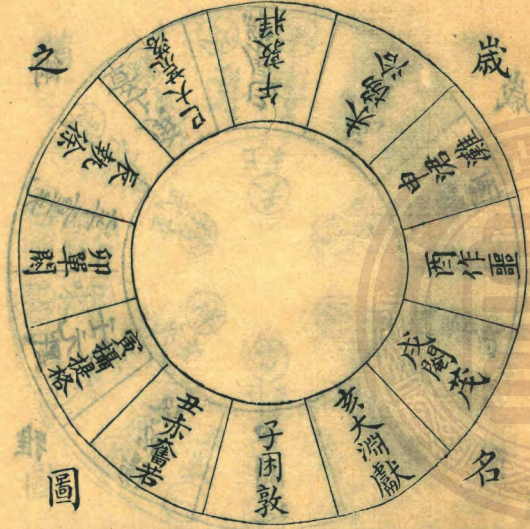 歲名
之圖
子困敦
丑赤奮若
寅攝提格
卯單閼
辰執徐
巳大荒落
午敦牂
未協洽
申涒灘
酉作噩
戌閹茂
亥大淵獻